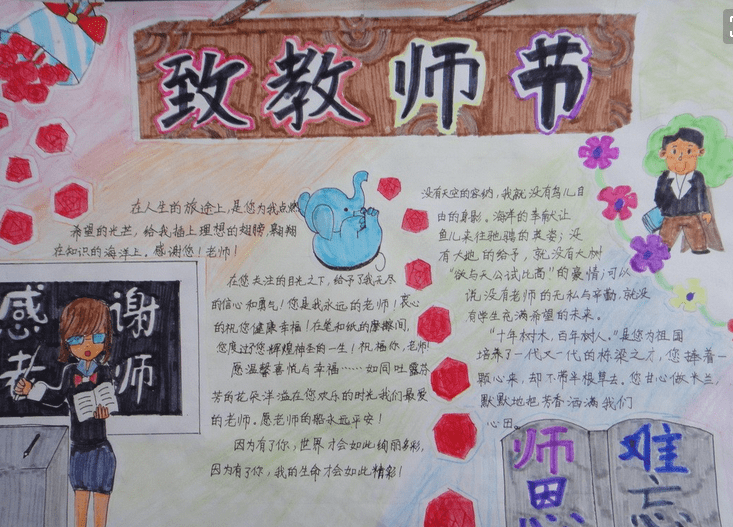 致教师节
在人生的旅途上,是您为我点燃
希望的光芒,给我插上理想的翅膀,翱翔
在知识的海洋上。感谢您!老师!
在您关注的目光之下,给予了我无尽
的信心和勇气!您是我永远的老师!衷心
的祝您健康幸福!在笔和纸的摩擦间,
您度过了您辉煌神圣的一生!祝福你,老师!
愿温馨喜悦与幸福……如同吐露芬
芳的花朵洋溢在您欢乐的时光我们最爱
的老师。愿老师的福永远平安!
因为有了你,世界才会如此绚丽多彩,
因为有了你,我的生命才会如此精彩!
没有天空的容纳,我就没有鸟儿自
由的身影。海洋的奉献让
鱼儿来往驰骋的英姿;没
有大地的给予,就没有大树
“欲与天公试比高”的豪情;可以
说没有老师的无私与辛勤,就没
有学生充满希望的未来。
“十年树木,百年树人。”是您为祖国
培养了一代又一代的栋梁之才,您捧着一
颗心来,却不带半根草去。您甘心做木兰,
默默地把芳香洒满我们
心田。
感谢
老师
师恩
难忘